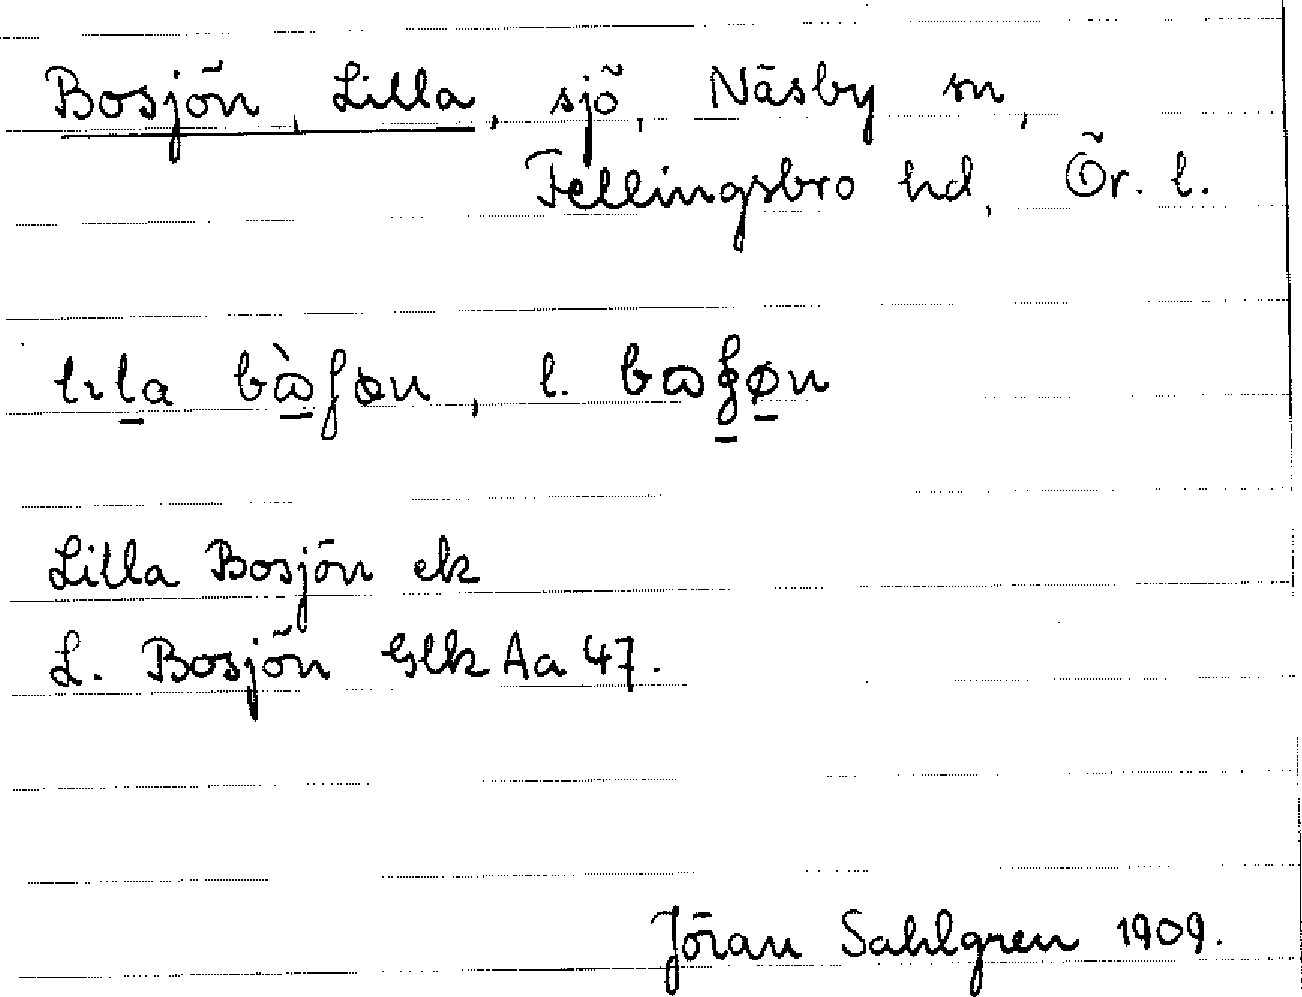 Bosjön, Lilla, sjö, Näsby sn,
Fellingsbro hd, Ör. l.
l.
Lilla Bosjön ek
L. Bosjön Glk Aa 47.
Jöran Sahlgren 1909.